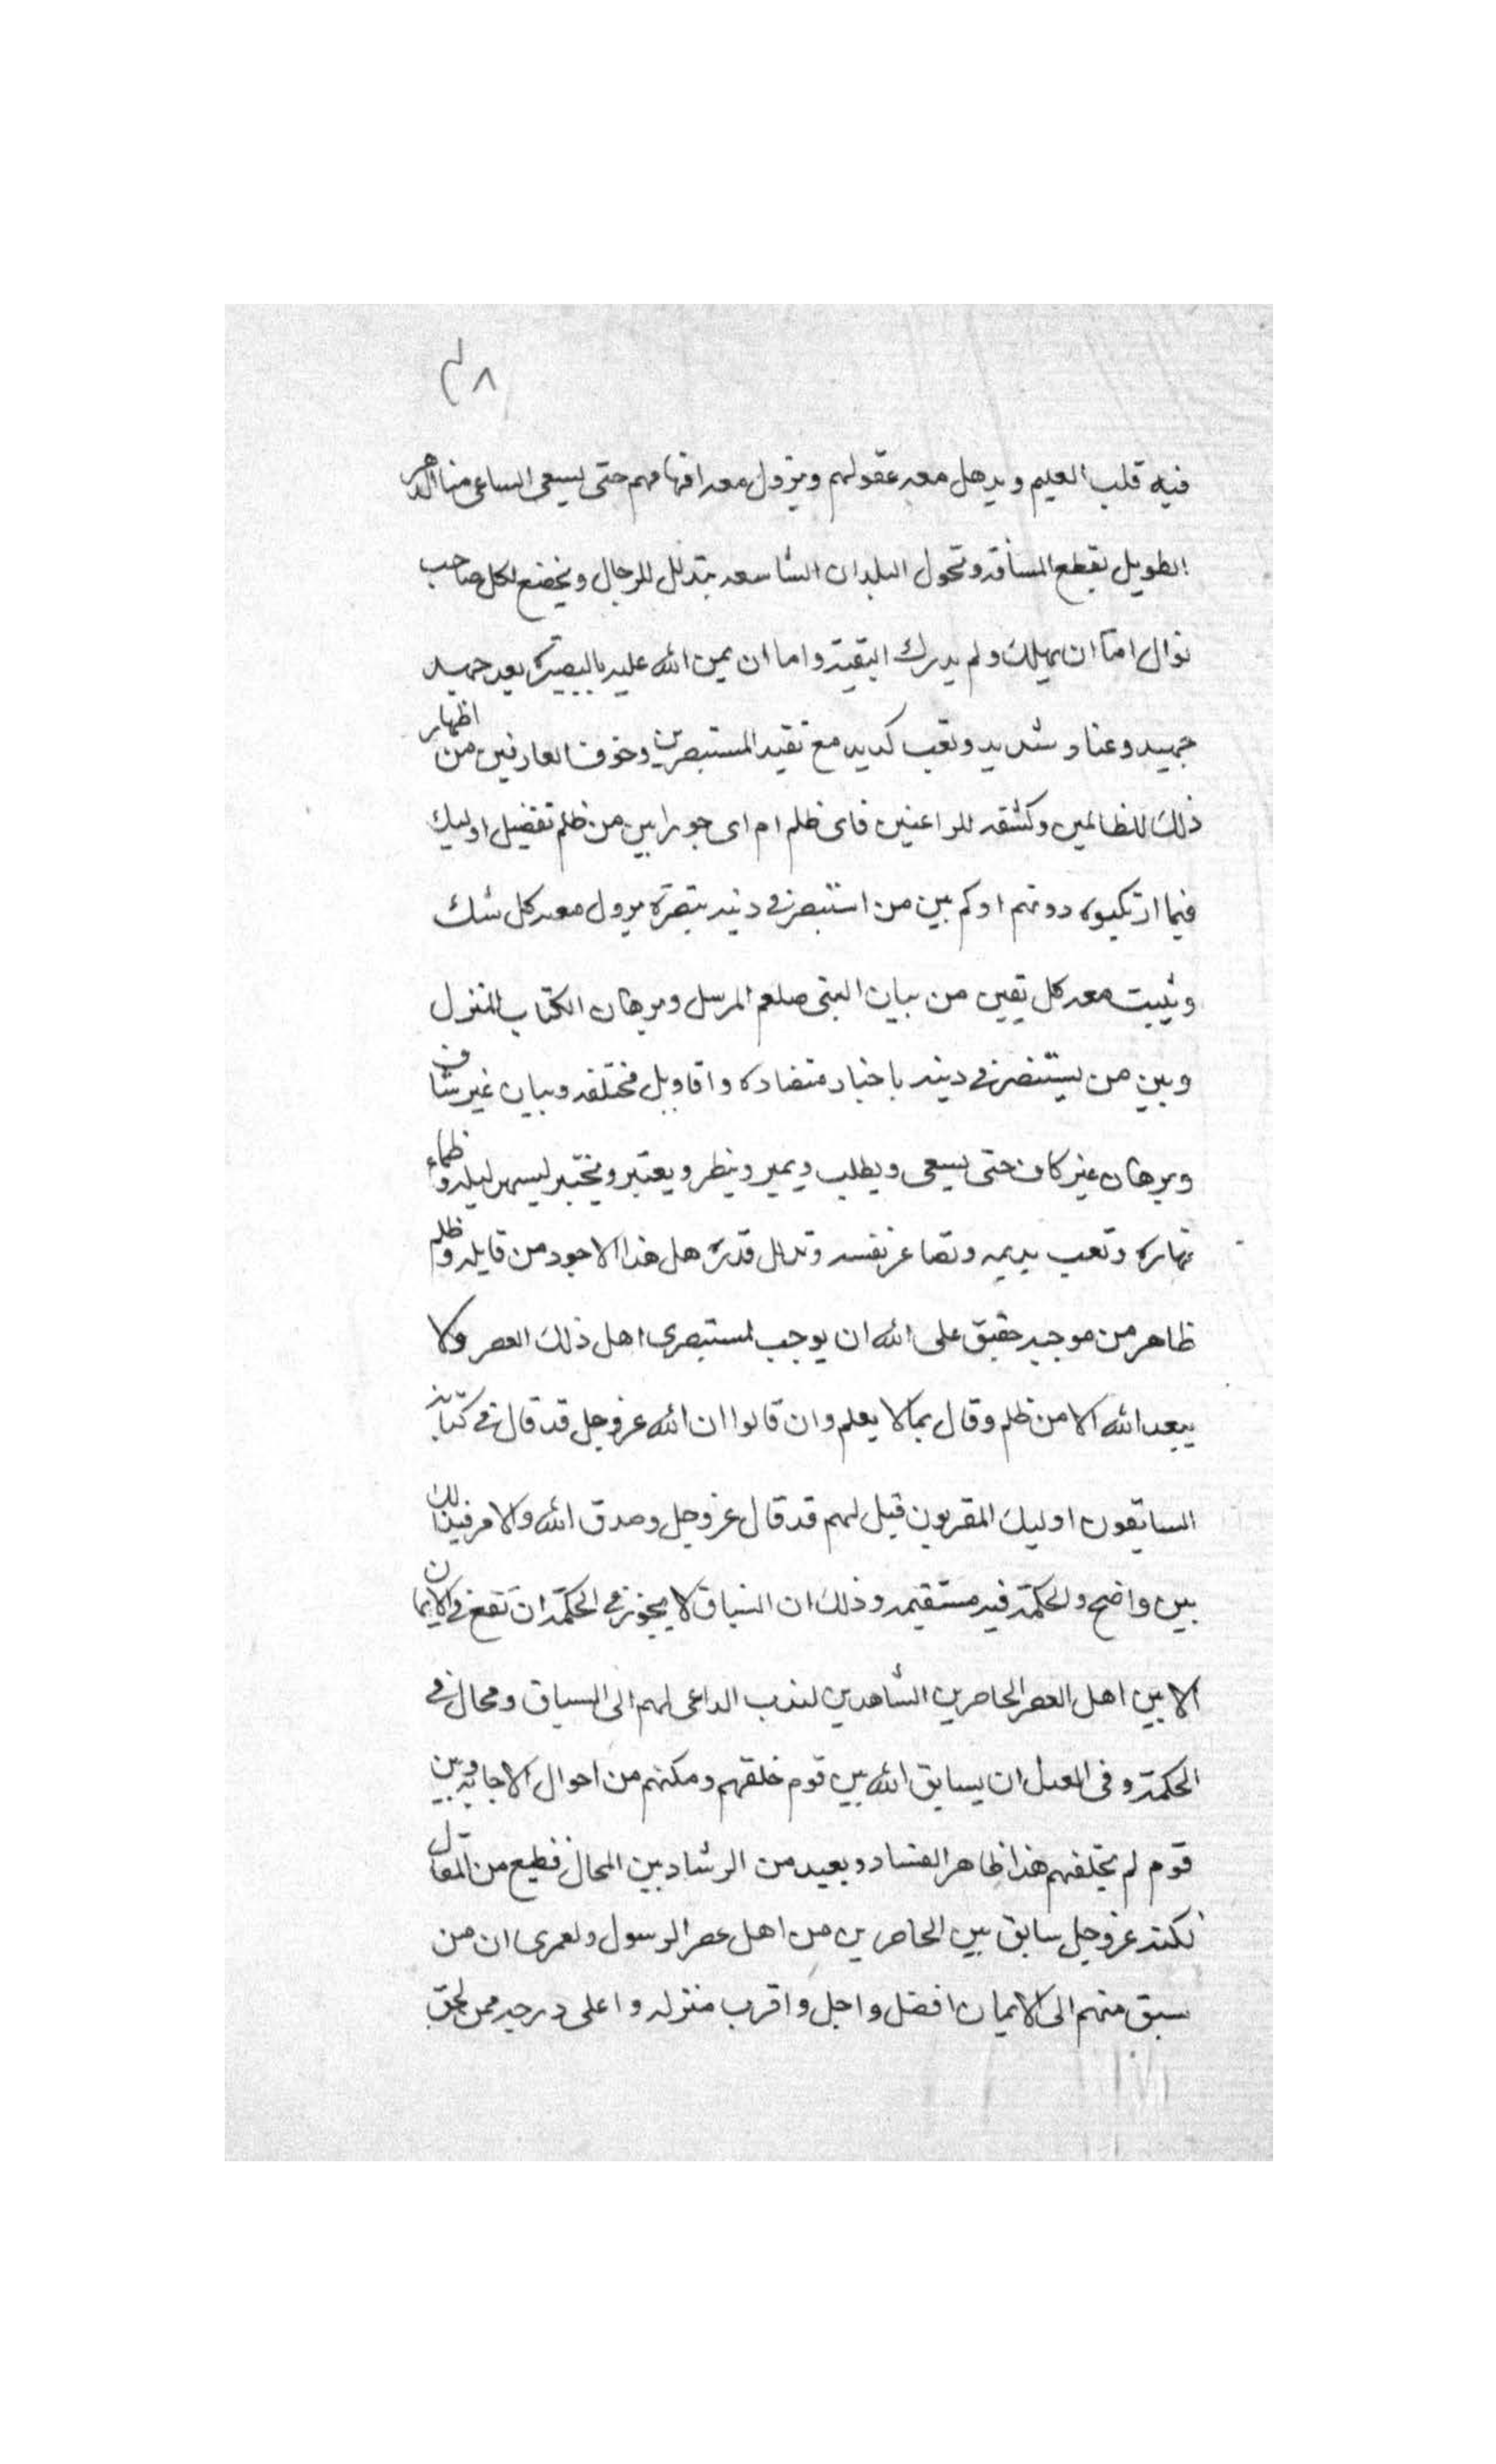 ٤٨
فيه قلب العليم ويدهل معه عقولهم ويزول معه افهامهم حتى يسعى الساعى منا الدهر
الطويل بقطع المسافه وتحول البلدان الشاسعه يتذلل للرجال ويخضع لكل صاحب
نوال اما ان يهلك ولم يدرك البقية واما ان يمن الله عليه بالبصيرة بعد جهيد
جهيد وعناء شديد وتعب كديد مع تقيد المستبصرين وخوف العارفين من اظهار
ذلك للظالمين وكشفه للراعنين فاى ظلم ام اى جور ابين من ظلم تفضيل اوليك
فيما ارتكبوه دونهم او كم بين من استبصر فى دينه بتبصرة يزول معه كل شك
ويثبت معه كل يقين من بيان النبى صلعم المرسل وبرهان الكتاب المنزل
وبين من يستنصر فى دينه باخبار متضاده واقاويل مختلفه وبيان غير شاف
وبرهان غير كاف حتى يسعى ويطلب ويميز وينظر ويعتبر ويختبر ليسهر ليله وظماء
نهاره وتعب بدنه وتصاغر نفسه وتذلل قدره هل هذا الا جود من قايله وظلم
ظاهر من موجبه حقيق على الله ان يوجب لمستبصرى اهل ذلك العصر ولا
يبعد الله الا من ظلم وقال بما لا يعلم وان قالوا ان الله عز وجل قد قال فى كتابه
السابقون اوليك المقربون قيل لهم قد قال عز وجل وصدق الله والامر فى ذلك
بين واضح والحكمة فيه مستقيمه وذلك ان السباق لا يجوز فى الحكمة ان تقع فى الايمان
الا بين اهل العصر الحاضرين الشاهدين لندب الداعى لهم الى السباق ومحال فى
الحكمة وفى العدل ان يسابق الله بين قوم خلقهم ومكنهم من احوال الاجابه وبين
قوم لم يخلقهم هذا ظاهر الفساد وبعيد من الرشاد بين المحال فظيع من المقال
لكنه عز وجل سابق بين الحاضرين من اهل عصر الرسول ولعمرى ان من
سبق منهم الى الايمان افضل واجل واقرب منزله واعلى درجه ممن لحق